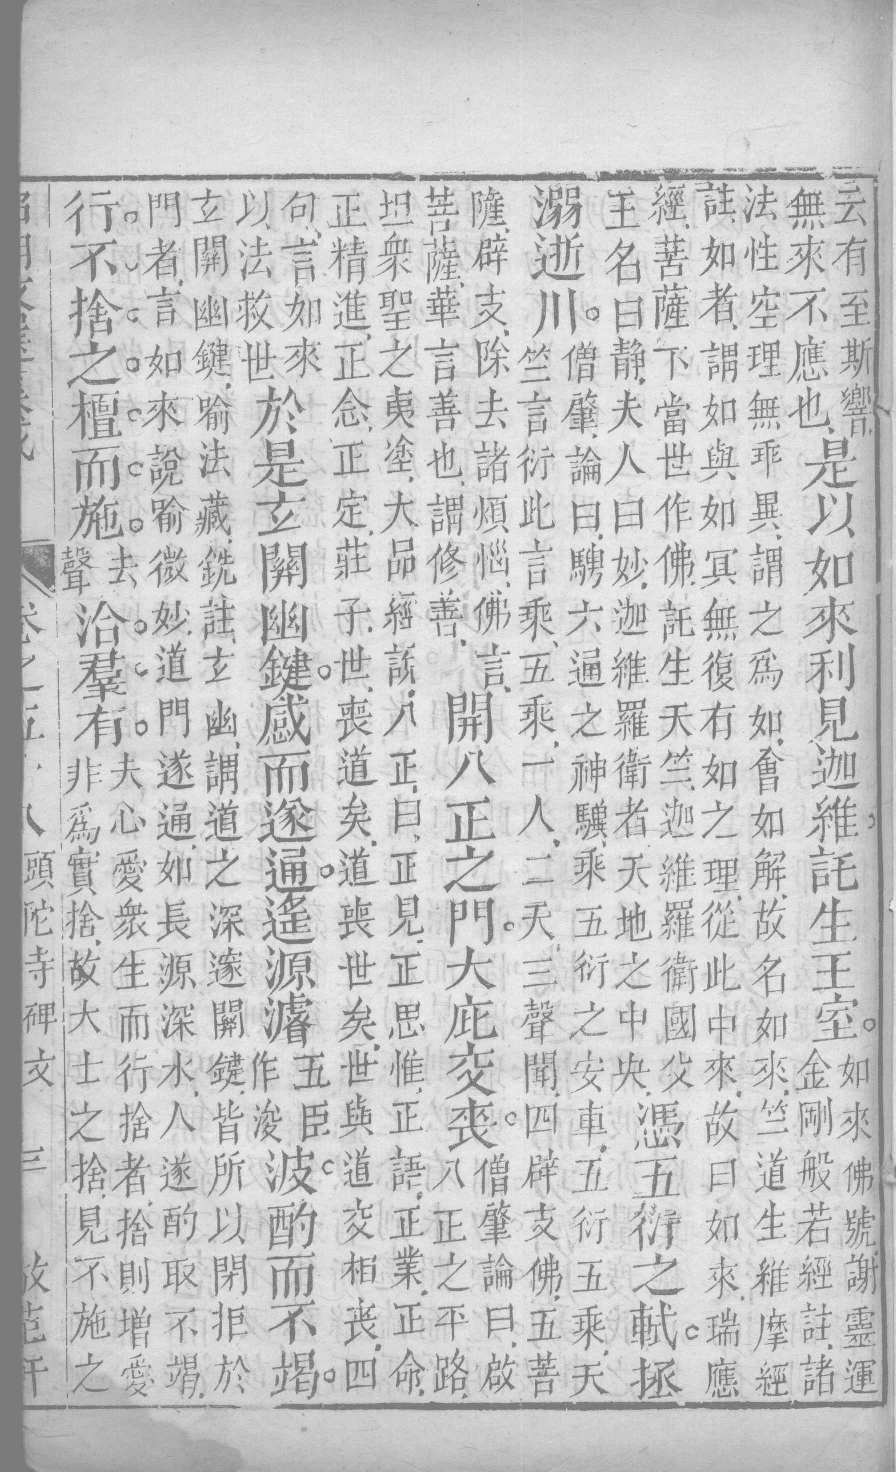 云有至斯響
無來不應也
是以如來利見迦維託生王室。
如來佛號謝靈運
金剛般若經註諸
法性空理無乖異謂之爲如會如解故名如來竺道生維摩經
註如者謂如與如冥無復有如之理從此中來故曰如來瑞應
經菩薩下當世作佛託生天竺迦維羅衛國父
王名曰静夫人曰妙迦維羅衛者天地之中央
憑五衍之軾。拯
溺逝川。
僧肇論曰騁六通之神驥乘五衍之安車五衍五乘天
竺言衍此言乘五乘一人二天三聲聞四辟支佛五菩
薩辟支除去諸煩惱佛言
菩薩華言善也謂修善
開八正之門。大庇交喪。
僧肇論曰啟
八正之平路
坦衆聖之夷塗大品經說八正曰正見正思惟正語正業正命
正精進正念正定莊子世喪道矣道喪世矣世與道交相喪四
句言如來
以法救世
於是玄關幽鍵。感而遂通。遙源濬
五臣
作浚
波。酌而不竭。
玄關幽鍵喻法藏銑註玄幽謂道之深邃關鍵皆所以閉拒於
門者言如來說喻微妙道門遂通如長源深水人遂酌取不竭
行不捨之檀而施
去
聲
洽羣有
夫心愛衆生而行捨者捨則增愛
非爲實捨故大士之捨見不施之
卷之五十八 頭陀寺碑文 三